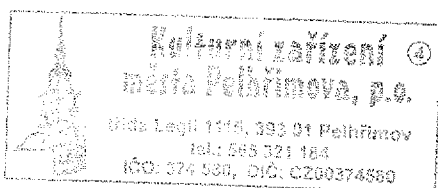 Kulturní zařízení ④
města Pelhřimova, p.o.
třída Legií 1115, 393 01 Pelhřimov
tel.: 565 321 184
IČO: 374 580, DIČ: CZ00374580